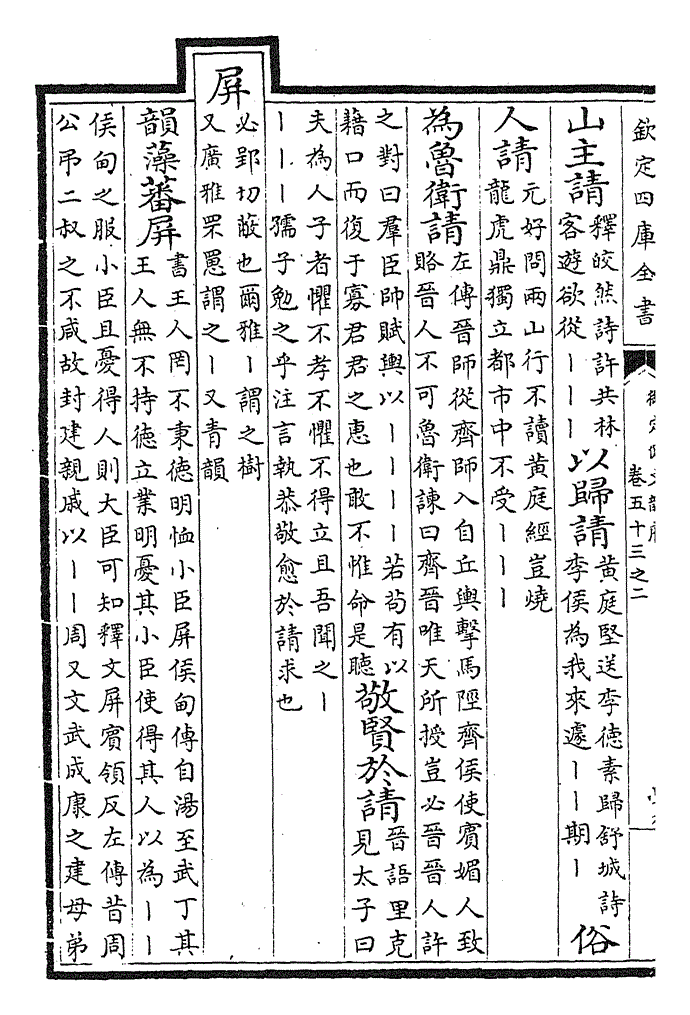 欽定四庫全書
卷五十三之二
山主請
釋皎然詩許共林
客遊欲從丨丨丨
以歸請
黃庭堅送李德素歸舒城詩
李侯為我來遽丨丨期丨
俗
人請
元好問兩山行不讀黃庭經豈燒
龍虎鼎獨立都市中不受丨丨丨
為魯衛請
左傳晉師從齊師入自丘輿擊馬陘齊侯使賓媚人致
賂晉人不可魯衛諫曰齊晉唯天所授豈必晉晉人許
之對曰羣臣帥賦輿以丨丨丨丨若苟有以
藉口而復于寡君君之惠也敢不惟命是聽
敬賢於請
晉語里克
見太子曰
夫為人子者懼不孝不懼不得立且吾聞之丨
丨丨丨孺子勉之乎注言執恭敬愈於請求也
屏
必郢切蔽也爾雅丨謂之樹
又廣雅罘罳謂之丨又青韻
韻藻蕃屏
書王人罔不秉德明恤小臣屏侯甸傳自湯至武丁其
王人無不持德立業明憂其小臣使得其人以為丨丨
侯甸之服小臣且憂得人則大臣可知釋文屏賓領反左傳昔周
公弔二叔之不咸故封建親戚以丨丨周又文武成康之建母弟